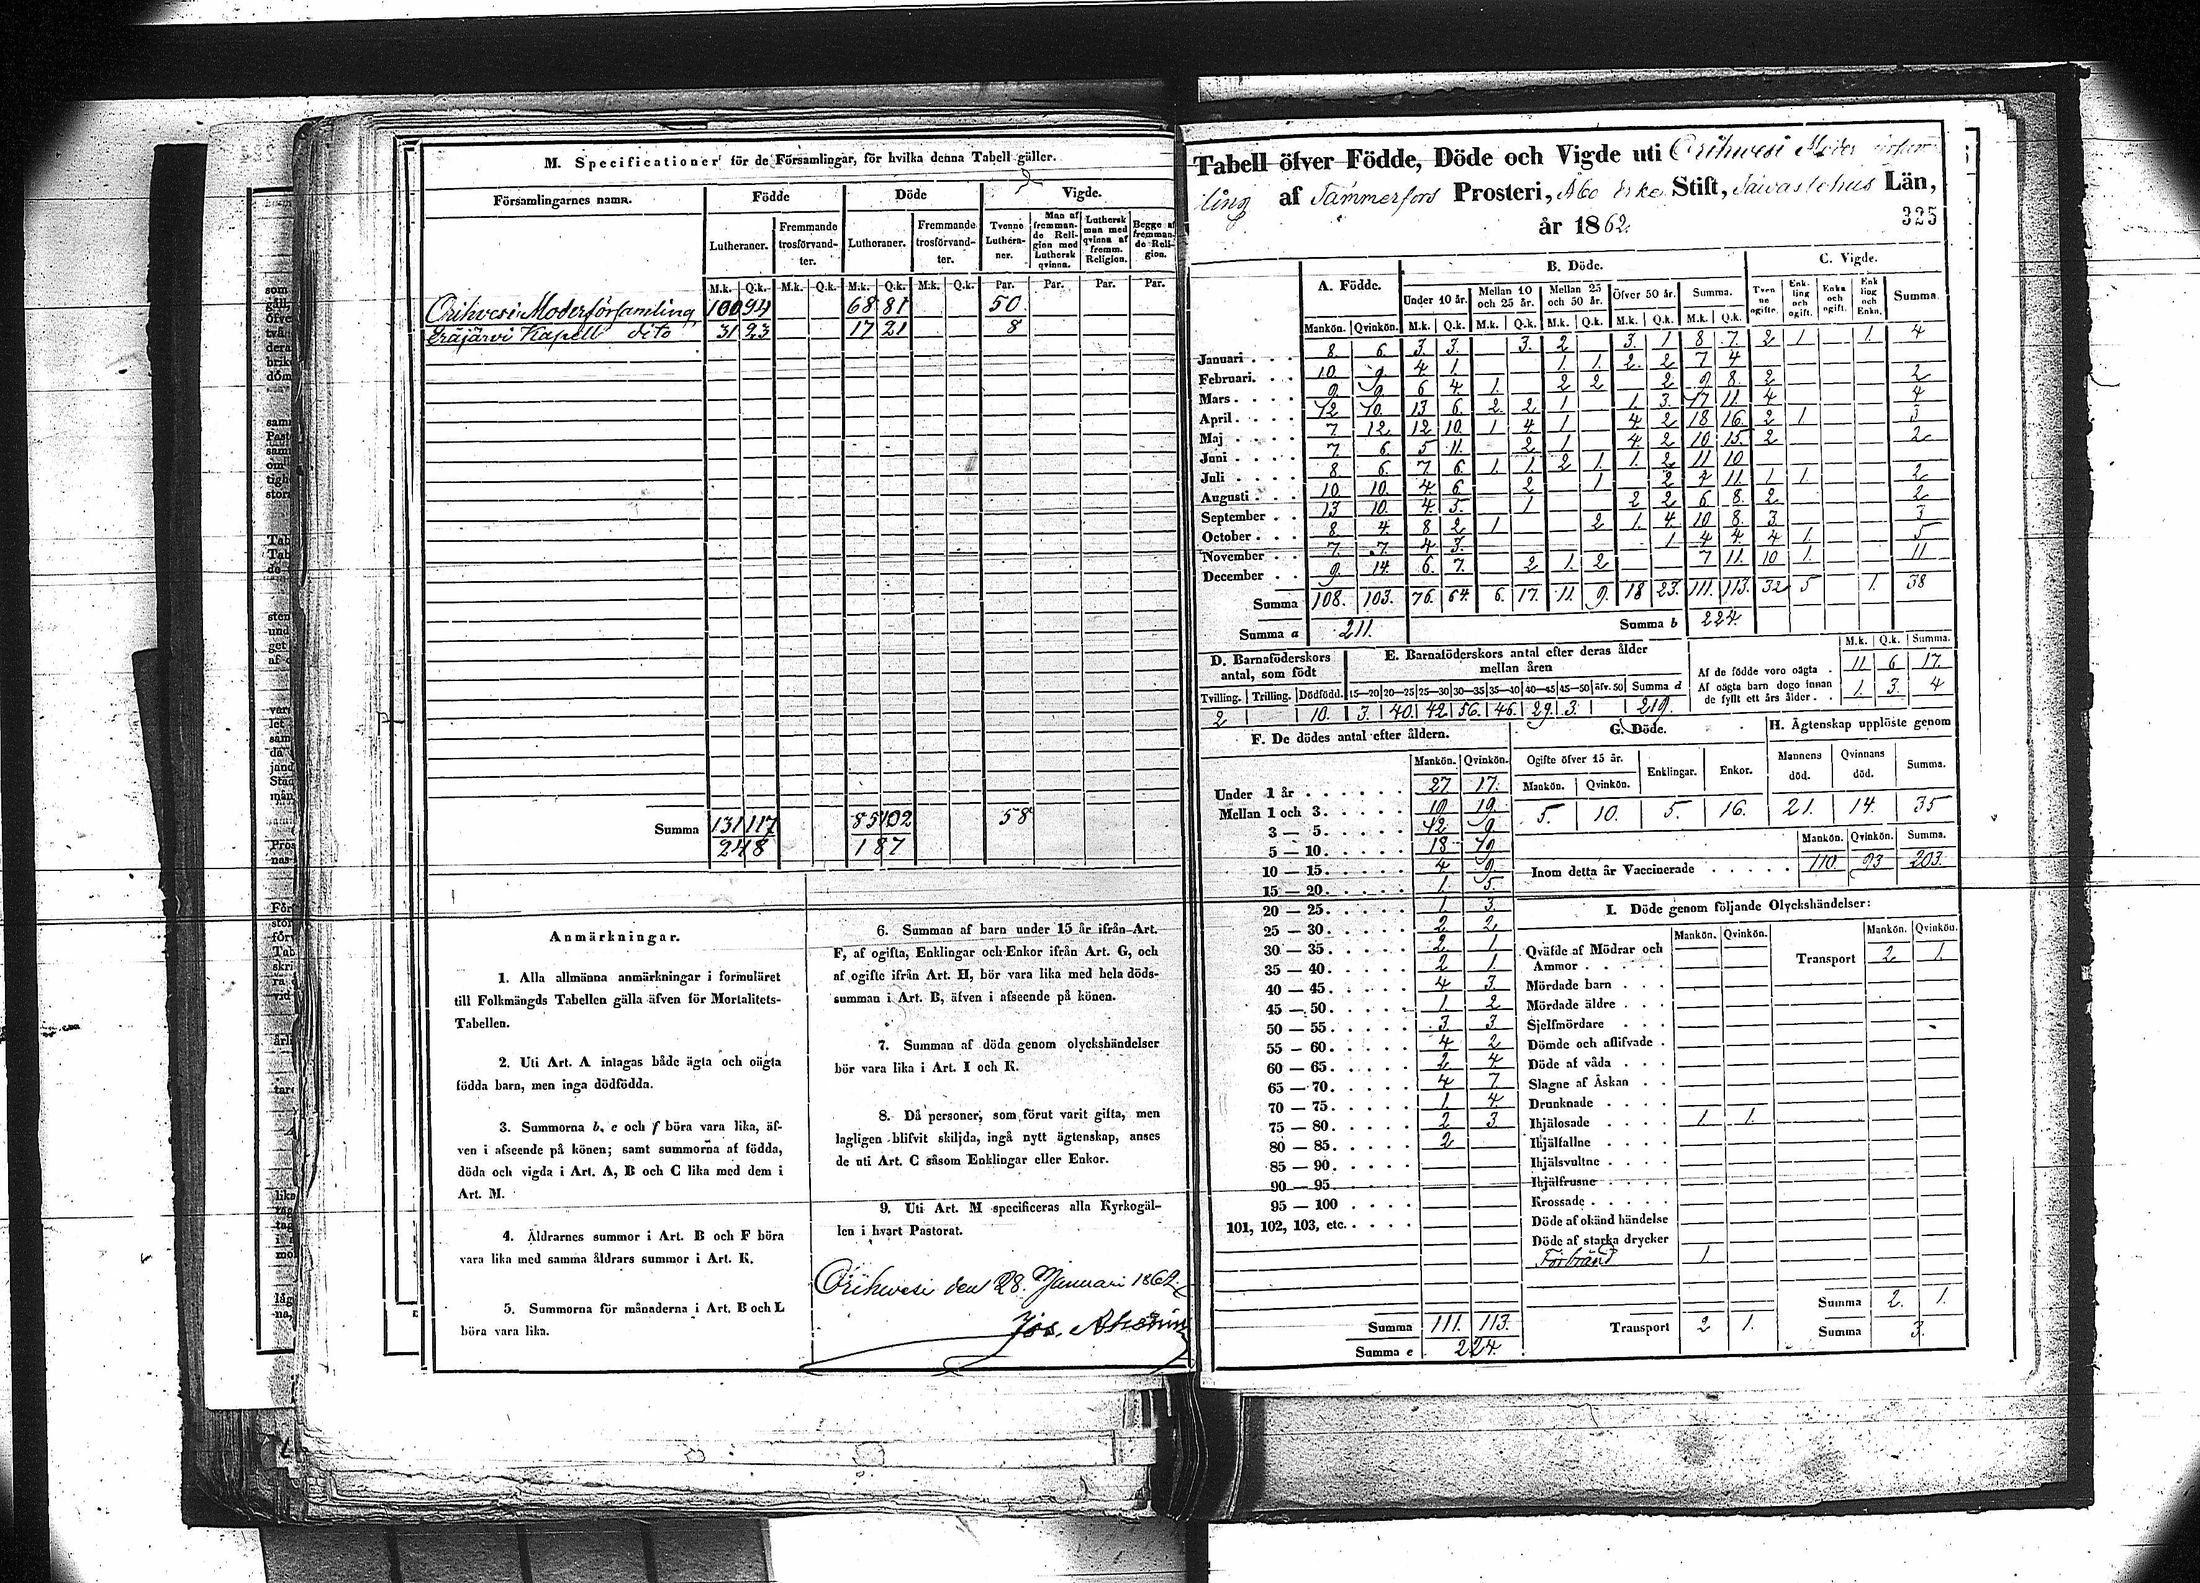 M. Specificationer för de Församlingar, för hvilka denna Tabell gäller.
Församlingarnes namn. Födde Döde Vigde.
Lutheraner. Fremmande trosförvandter. Lutheraner. Fremmande trosförvandter. Tvenne Lutheraner. Man af fremmande Religion med Luthersk qvinna. Luthersk man med qvinna af fremm. Religion. Begge af fremmande Religion.
M.k. Q.k. M.k. Q.k. M.k. Q.k. M.k. Q.k. Par. Par. Par. Par.
Orihwesi Moderförsamling 100 94 68 81 50
Eräjärvi Kapell dito 31 23 17 21 8
Summa 131 117 85 102 58
248 187
Anmärkningar.
1. Alla allmänna anmärkningar i formuläret
till Folkmängds Tabellen gälla äfven för Mortalitets-
Tabellen.
2. Uti Art. A intagas både ägta och oägta
födda barn, men inga dödfödda.
3. Summorna b, e och f böra vara lika, äf-
ven i afseende på könen; samt summorna af födda,
döda och vigda i Art. A, B och C lika med dem i
Art. M.
4. Åldrarnes summor i Art. B och F böra
vara lika med samma åldrars summor i Art. K.
5. Summorna för månaderna i Art. B och L
böra vara lika.
6. Summan af barn under 15 år ifrån Art.
F, af ogifta, Enklingar och Enkor ifrån Art. G, och
af ogifte ifrån Art. H, bör vara lika med hela döds-
summan i Art. B, äfven i afseende på könen.
7. Summan af döda genom olyckshändelser
bör vara lika i Art. I och K.
8. Då personer, som förut varit gifta, men
lagligen blifvit skiljda, ingå nytt ägtenskap, anses
de uti Art. C såsom Enklingar eller Enkor.
9. Uti Art. M specificeras alla Kyrkogäl-
len i hvart Pastorat.
Orihwesi den 28 Januari 1862.
Jos.
Tabell öfver Födde, Döde och Vigde uti Orihwesi Moder
ling af Tammerfors Prosteri, Åbo Erke Stift, Tawastehus Län,
år 1862.
325
A. Födde. B. Döde. C. Vigde.
Under 10 år. Mellan 10 och 25 år. Mellan 25 och 50 år. Öfver 50 år. Summa. Tvenne ogifte. Enkling och ogift. Enka och ogift. Enkling och Enka. Summa.
Mankön. Qvinkön. M.k. Q.k. M.k. Q.k. M.k. Q.k. M.k. Q.k. M.k. Q.k.
Januari 8 6 3 3 3 2 3 1 8 7 2 1 1 4
Februari 10 9 4 1 1 1 2 2 7 4
Mars 9 9 6 4 1 2 2 2 9 8 2 2
April 12 10 13 6 2 2 1 1 3 17 11 4 4
Maj 7 12 12 10 1 4 1 4 2 18 16 2 1 3
Juni 7 6 5 11 2 1 4 2 10 15 2 2
Juli 8 6 7 6 1 1 2 1 1 2 11 10
Augusti 10 10 4 6 2 1 2 4 11 1 1 2
September 13 10 4 5 1 2 2 6 8 2 2
October 8 4 8 2 1 2 1 4 10 8 3 3
November 7 7 4 3 1 4 4 4 1 5
December 9 14 6 7 2 1 2 7 11 10 1 11
Summa 108. 103. 76. 64. 6. 17. 11. 9. 18 23. 111. 113. 32 5 1. 38
Summa a 211. Summa b 224.
D. Barnaföderskors antal, som födt
E. Barnaföderskors antal efter deras ålder mellan åren
M.k. Q.k. Summa.
Af de födde voro oägta 11 6 17.
Af oägta barn dogo innan de fyllt ett års ålder 1. 3. 4
Tvilling. Trilling. Dödfödd. 15—20 20—25 25—30 30—35 35—40 40—45 45—50 öfv. 50 Summa d
2 10. 3. 40. 42. 56. 46. 29. 3. 219.
F. De dödes antal efter åldern.
Mankön. Qvinkön.
Under 1 år 27 17.
Mellan 1 och 3 19 19.
3 — 5 12 9
5 — 10 18 19
10 — 15 4 9
15 — 20 1 5
20 — 25 1 3
25 — 30 2 2
30 — 35 2 1
35 — 40 2 1
40 — 45 4 3
45 — 50 1 2
50 — 55 3 3
55 — 60 4 2
60 — 65 2 4
65 — 70 4 7
70 — 75 1 4
75 — 80 2 3
80 — 85 2
85 — 90
90 — 95
95 — 100
101, 102, 103, etc.
Summa 111. 113.
Summa e 224.
G. Döde.
Ogifte öfver 15 år. Enklingar. Enkor.
Mankön. Qvinkön.
5. 10. 5. 16.
H. Ägtenskap upplöste genom
Mannens död. Qvinnans död. Summa.
21. 14. 35
Mankön. Qvinkön. Summa.
Inom detta år Vaccinerade 110. 93 203.
I. Döde genom följande Olyckshändelser:
Mankön. Qvinkön. Mankön. Qvinkön.
Qväfde af Mödrar och Ammor
Transport 2 1.
Mördade barn
Mördade äldre
Sjelfmördare
Dömde och aflifvade
Döde af våda
Slagne af Åskan
Drunknade
Ihjälosade 1 1.
Ihjälfallne
Ihjälsvultne
Ihjälfrusne
Krossade
Döde af okänd händelse
Döde af starka drycker
Förbränd 1
Transport 2 1.
Summa 2. 1.
Summa 3.